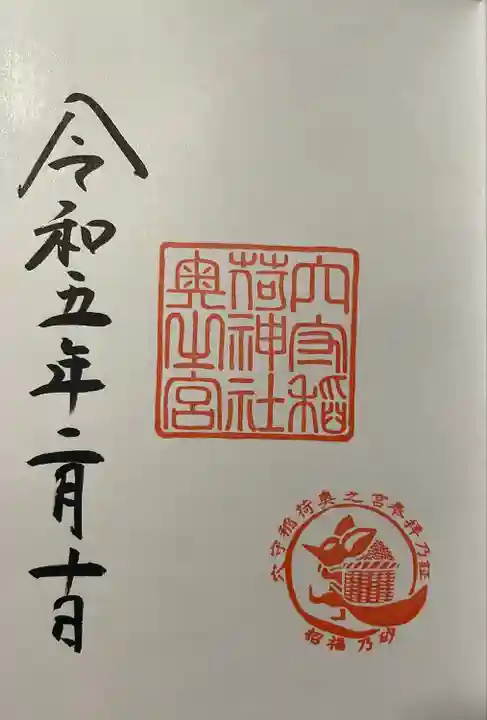 穴守稲
荷神社
奥之宮
令和五年二月十日
穴守稲荷奥之宮参拝乃証
招福乃砂